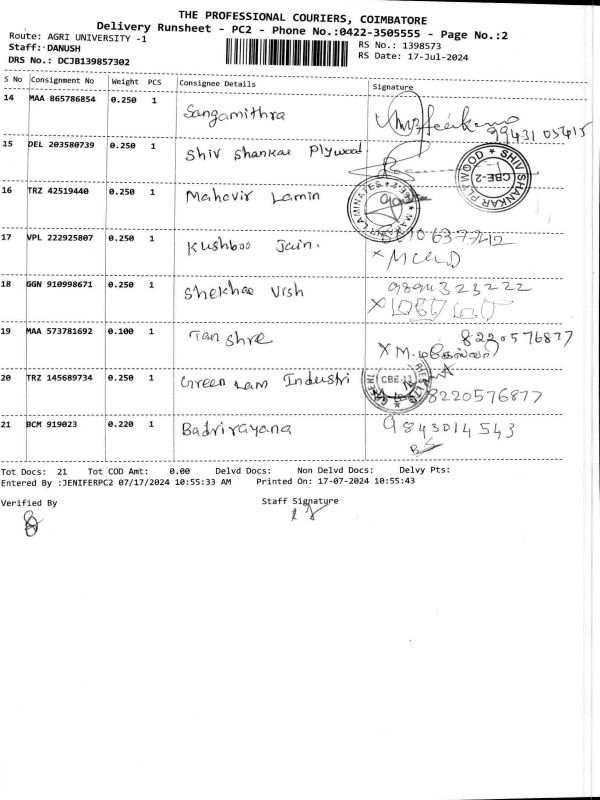 THE PROFESSIONAL COURIERS, COIMBATORE
Delivery Runsheet - PC2 - Phone No.:0422-3505555 - Page No.:2
Route: AGRI UNIVERSITY -1 RS No.: 1398573
Staff: DANUSH RS Date: 17-Jul-2024
DRS No.: DCJB139857302
S No Consignment No Weight PCS Consignee Details Signature
14 MAA 865786854 0.250 1 Sangamithra 99431 05415
15 DEL 203580739 0.250 1 Shiv Shankar Plywood SHIV SHANKAR PLYWOOD CBE-2
16 TRZ 42519440 0.250 1 Mahavir Lamin
17 VPL 222925807 0.250 1 Kushboo Jain.
18 GGN 910998671 0.250 1 Shekhar Vish 9894323222
19 MAA 573781692 0.100 1 Tan Shre 8220576877
20 TRZ 145689734 0.250 1 Green Lam Industri 8220576877
21 BCM 919023 0.220 1 Badrirayana 9843014543
Tot Docs: 21 Tot COD Amt: 0.00 Delvd Docs: Non Delvd Docs: Delvy Pts:
Entered By :JENIFERPC2 07/17/2024 10:55:33 AM Printed On: 17-07-2024 10:55:43
Verified By Staff Signature